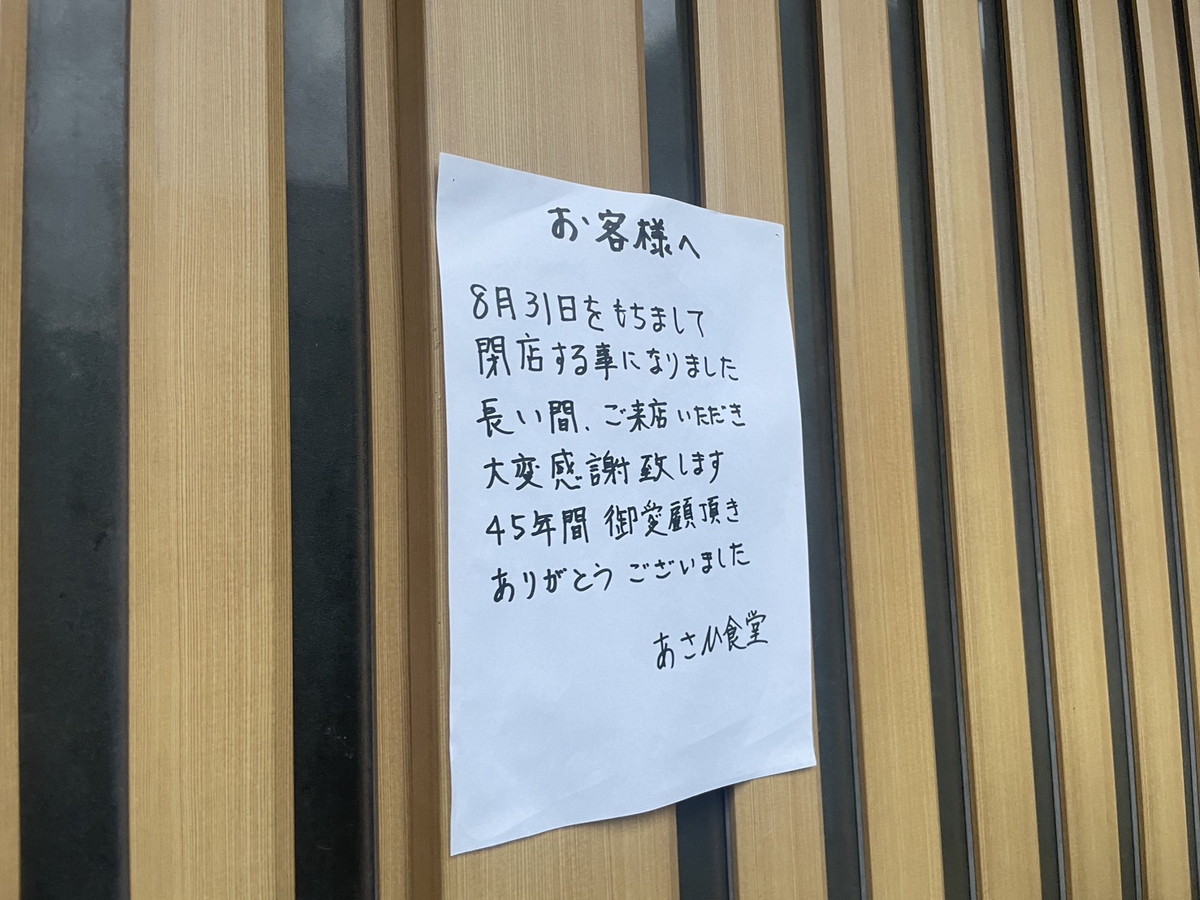 お客様へ
8月31日をもちまして
閉店する事になりました
長い間、ご来店いただき
大変感謝致します
45年間 御愛顧頂き
ありがとうございました
あさひ食堂